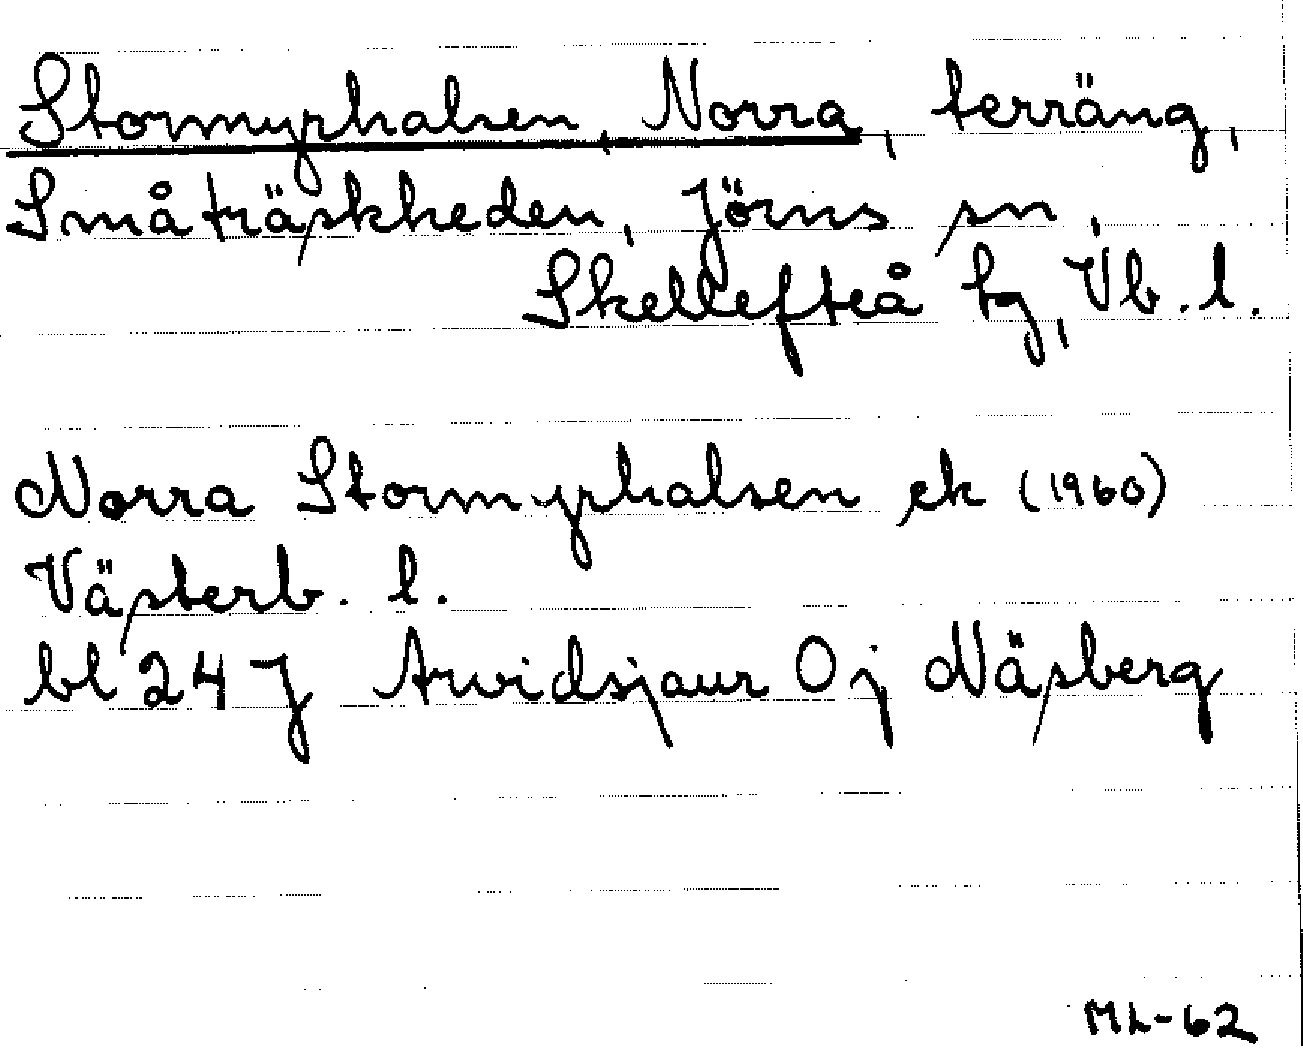 Stormyrhalsen, Norra, terräng,
Småträskheden, Jörns sn,
Skellefteå tg, Vb. l.
Norra Stormyrhalsen ek (1960)
Västerb. l.
bl 24 J Arvidsjaur Oj Näsberg
ML-62